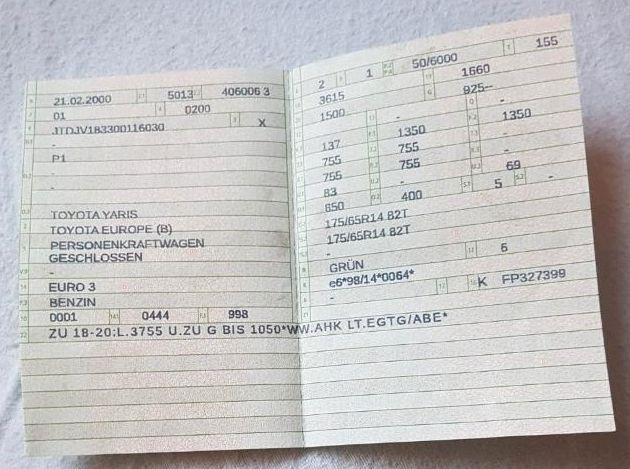 21.02.2000 5013 406006 3
01 0200
JTDJV183300116030 X
-
P1
-
-
TOYOTA YARIS
TOYOTA EUROPE (B)
PERSONENKRAFTWAGEN
GESCHLOSSEN
-
EURO 3
BENZIN
0001 0444 998
ZU 18-20:L.3755 U.ZU G BIS 1050*WW.AHK LT.EGTG/ABE*
2 1 50/6000 155
3615 1660
1500 925--
- -
137 1350 1350
755 755 -
755 755 -
83 - 69
850 400 5 -
175/65R14 82T
175/65R14 82T
-
GRÜN 6
e6*98/14*0064*
- K FP327399